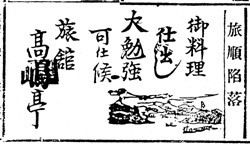 旅順陥落
御料理
仕出し
大勉強
可仕候
旅館
高嶋亭